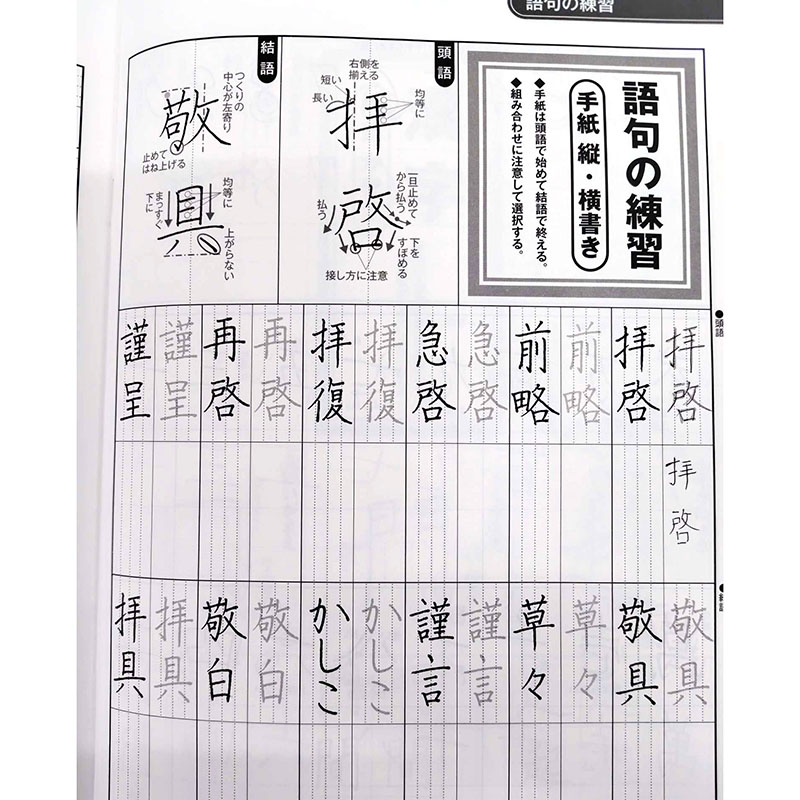 語句の練習
語句の練習
手紙 縦・横書き
◆手紙は頭語で始めて結語で終える。
◆組み合わせに注意して選択する。
頭語
拝啓
右側を
揃える
短い
長い
均等に
一旦止めて
から払う
払う
下を
すぼめる
接し方に注意
結語
敬具
つくりの
中心が左寄り
止めて
はね上げる
均等に
まっすぐ
下に
上がらない
●頭語
拝啓
拝啓
拝啓
前略
前略
急啓
急啓
拝復
拝復
再啓
再啓
謹呈
謹呈
●結語
敬具
敬具
草々
草々
謹言
謹言
かしこ
かしこ
敬白
敬白
拝具
拝具